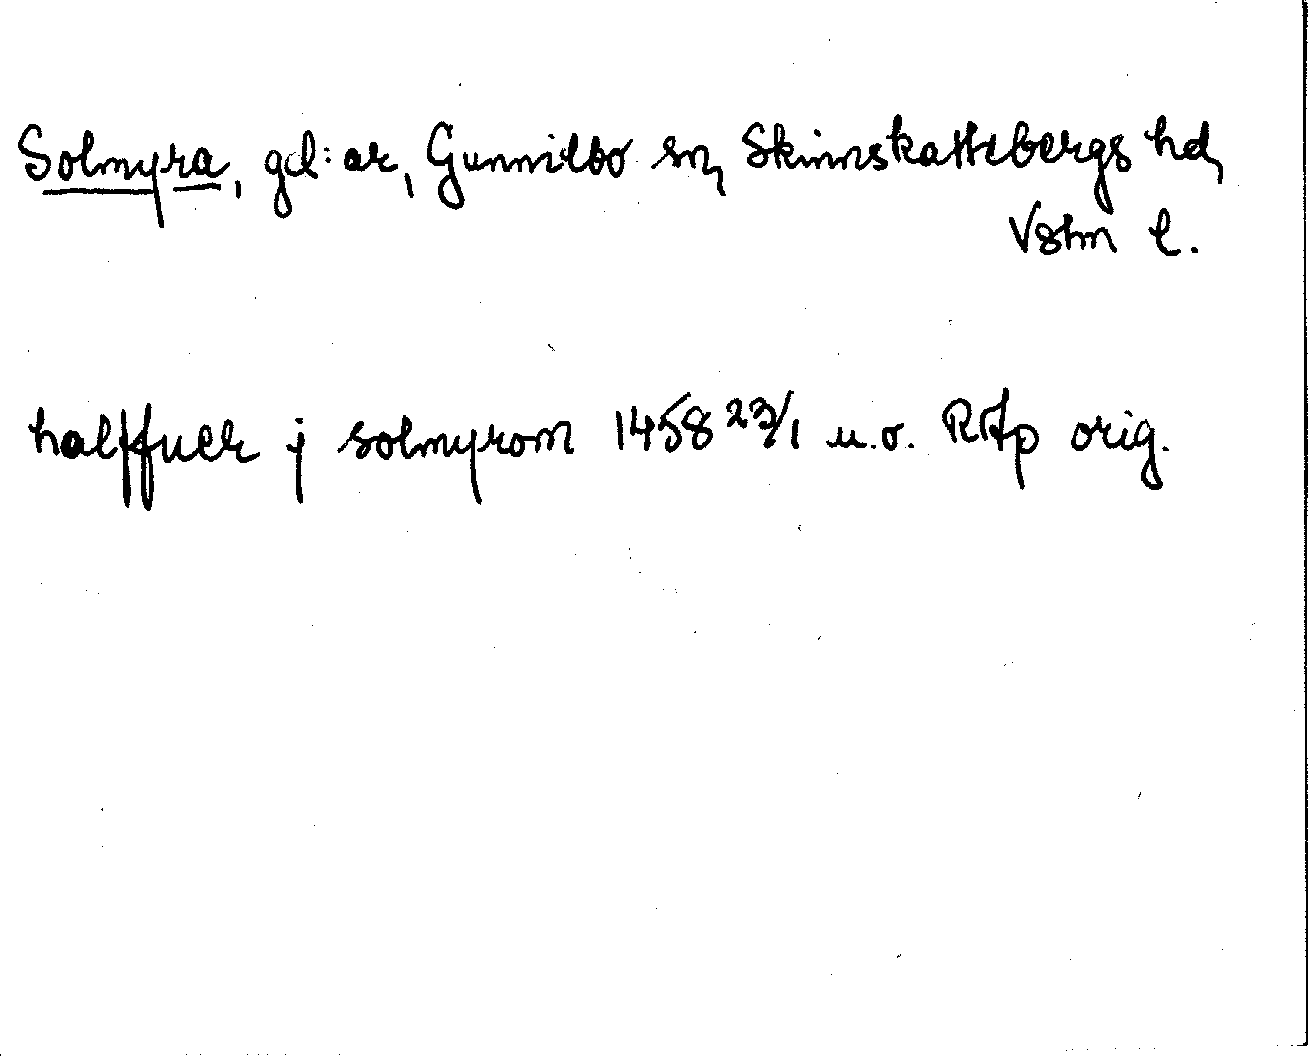 Solmyra, gd:ar, Gunnilbo sn, Skinnskattebergs hd,
Vstm l.
halffuer j solmyrom 1458 23/1 u.o. RAp orig.